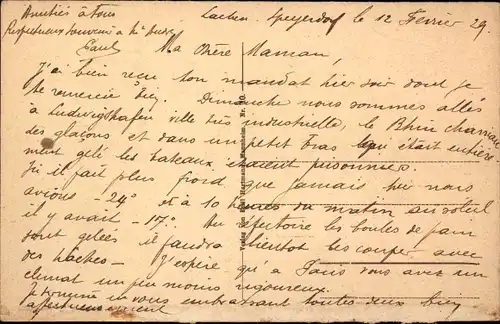 Amitiés à tous
Respectueux souvenir à
Paul
Lachen-Speyerdorf le 12 Février 29.
Ma Chère Maman,
J'ai bien reçu ton mandat hier soir dont je
te remercie bien. Dimanche nous sommes allés
à Ludwigshafen ville très industrielle, le Rhin charriait
des glaçons et dans un petit bras qui était entière-
ment gelé les bateaux étaient prisonniers.
Ici il fait plus froid que jamais hier nous
avions -24° et à 10 heures du matin au soleil
il y avait -17°. Au réfectoire les boules de pain
sont gelées il faudra bientôt les couper avec
des haches. J'espère qu'à Paris vous avez un
climat un peu moins rigoureux.
Je termine en vous embrassant toutes deux bien
affectueusement
Verlag von Hartmann, Mannheim. Nr.